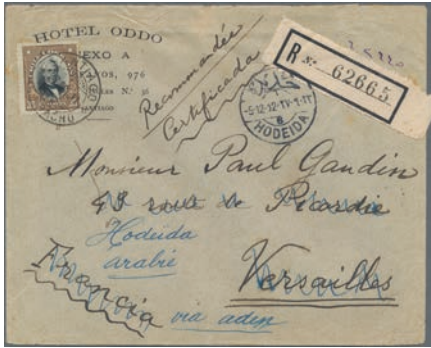 HOTEL ODDO
EXO A
976
SANTIAGO
Recommandée
Certificada
R No. 62665
HODEIDA
Monsieur Paul Gaudin
43 rue de Picardie
Hodeida
arabie
Versailles
Francia
via aden